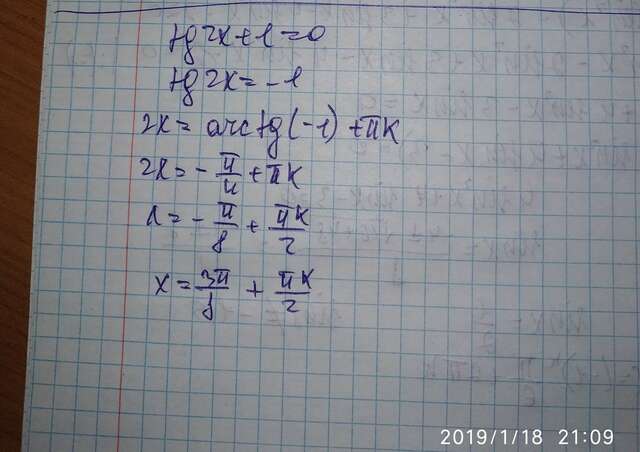 tg 2x + 1 = 0
tg 2x = -1
2x = arctg(-1) + πk
2x = -π/4 + πk
x = -π/8 + πk/2
x = 3π/8 + πk/2
2019/1/18 21:09